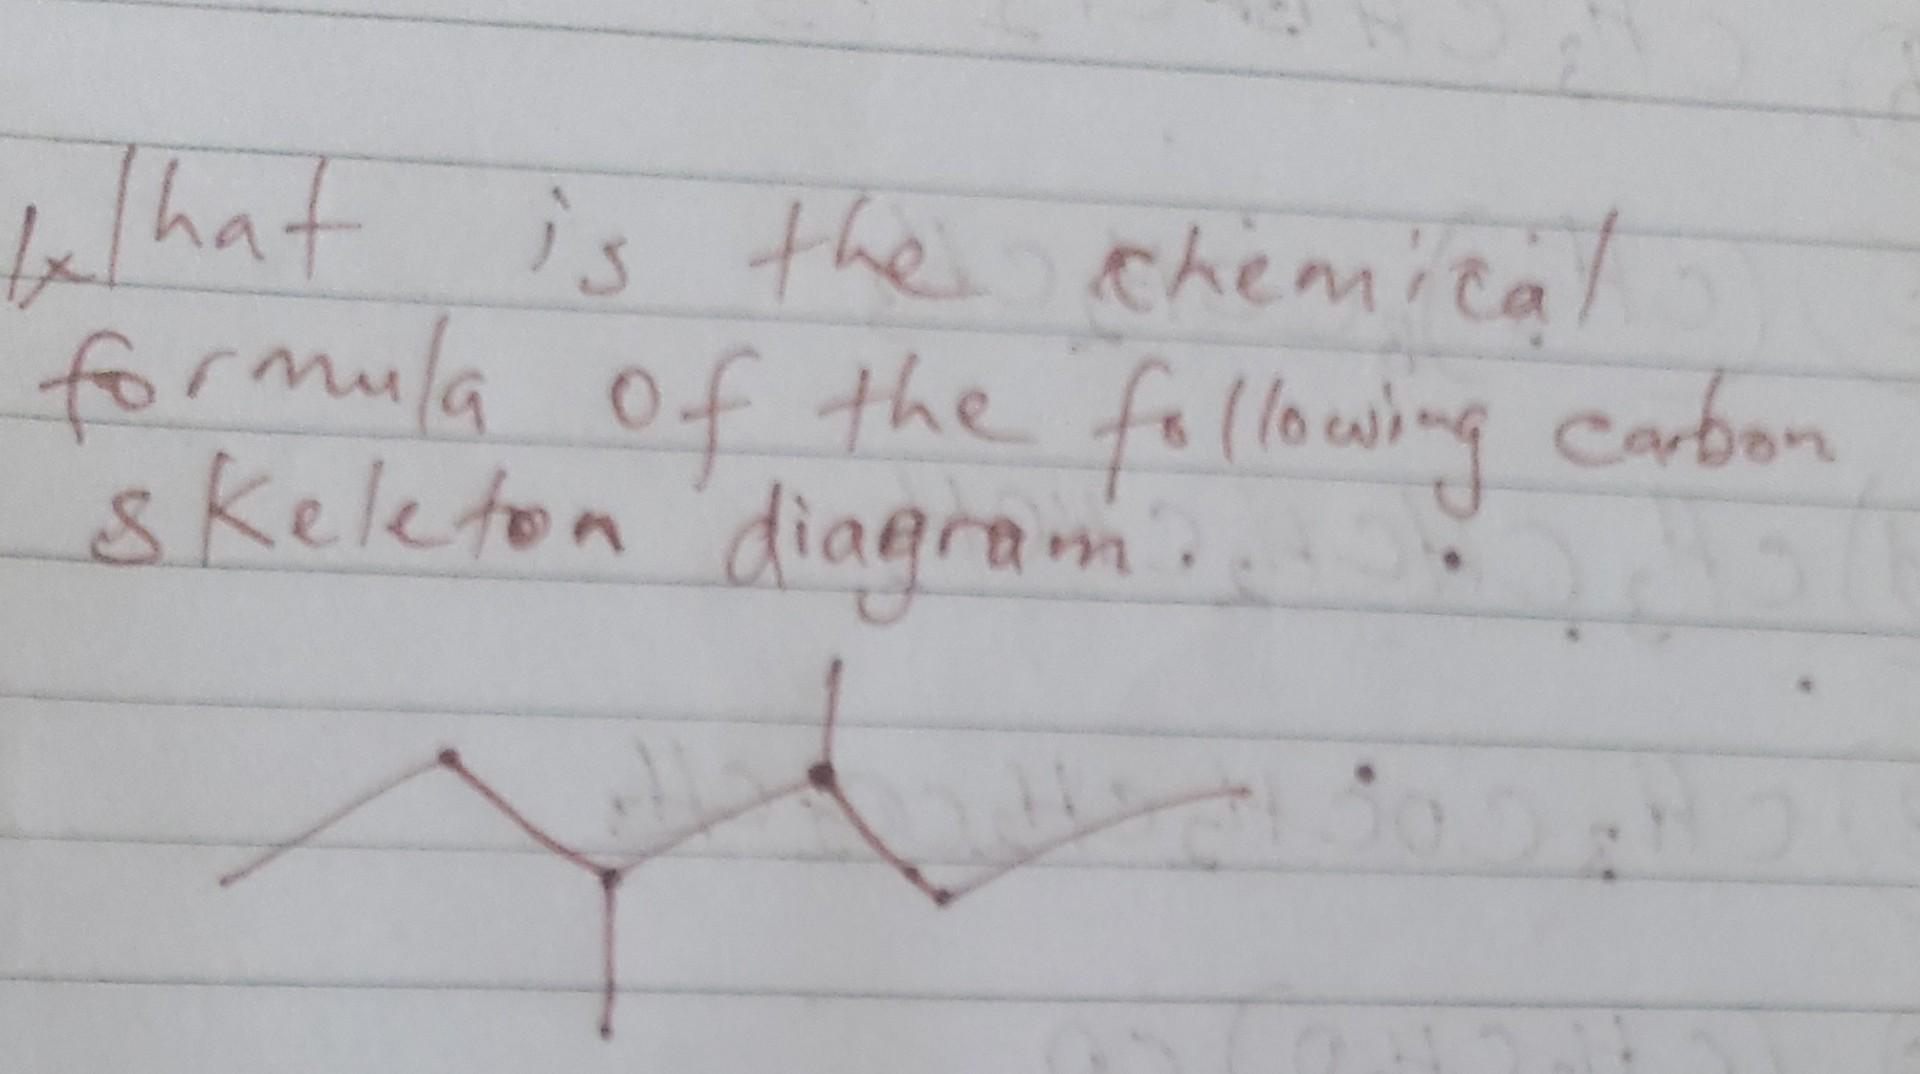 What is the chemical
formula of the following carbon
skeleton diagram.